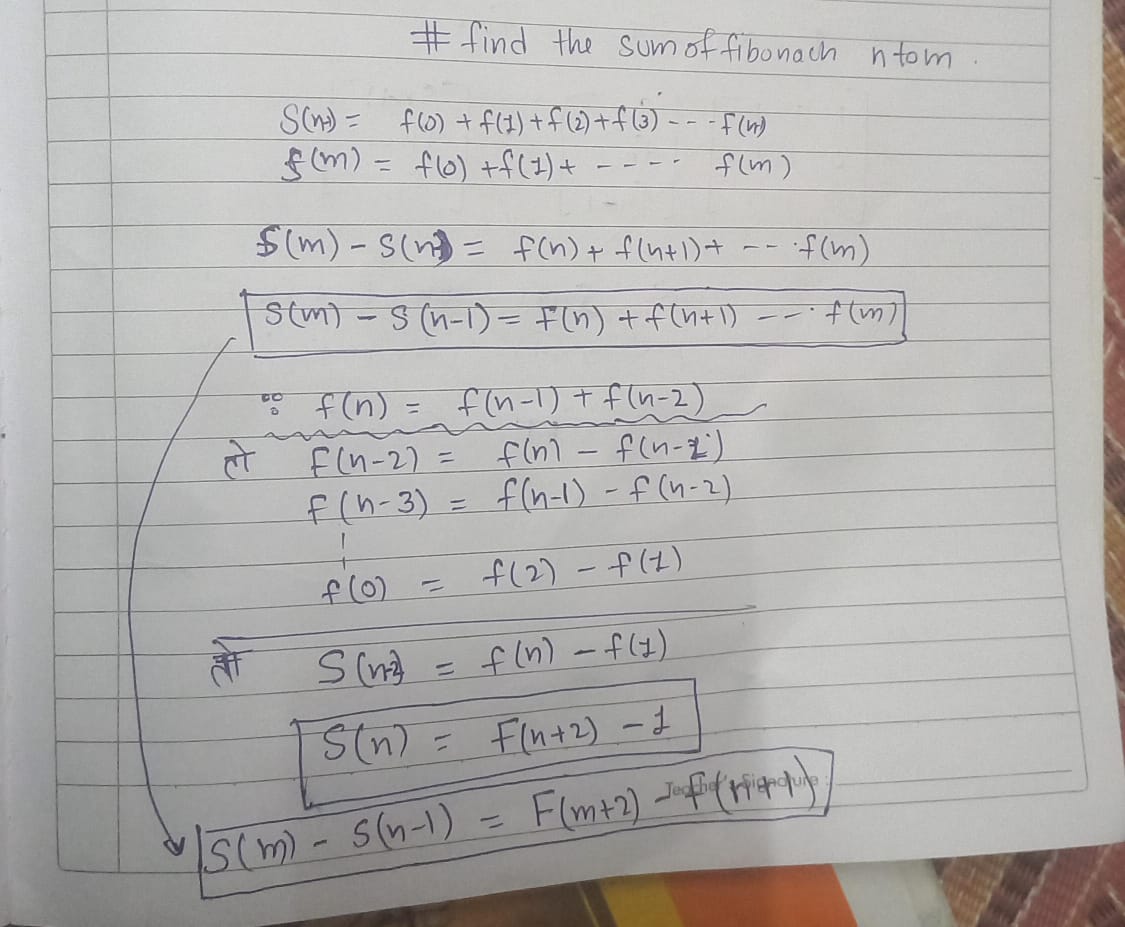 # find the sum of fibonach n to m.
S(n) = f(0) + f(1) + f(2) + f(3) - - - f(n)
f(m) = f(0) + f(1) + - - - - f(m)
S(m) - S(n) = f(n) + f(n+1) + - - · f(m)
S(m) - S(n-1) = f(n) + f(n+1) - - · f(m)
∵ f(n) = f(n-1) + f(n-2)
तो F(n-2) = f(n) - f(n-1)
F(n-3) = f(n-1) - f(n-2)
f(0) = f(2) - f(1)
तो S(n-2) = f(n) - f(1)
S(n) = F(n+2) - 1
S(m) - S(n-1) = F(m+2) - f(n+1)
Teacher's Signature :